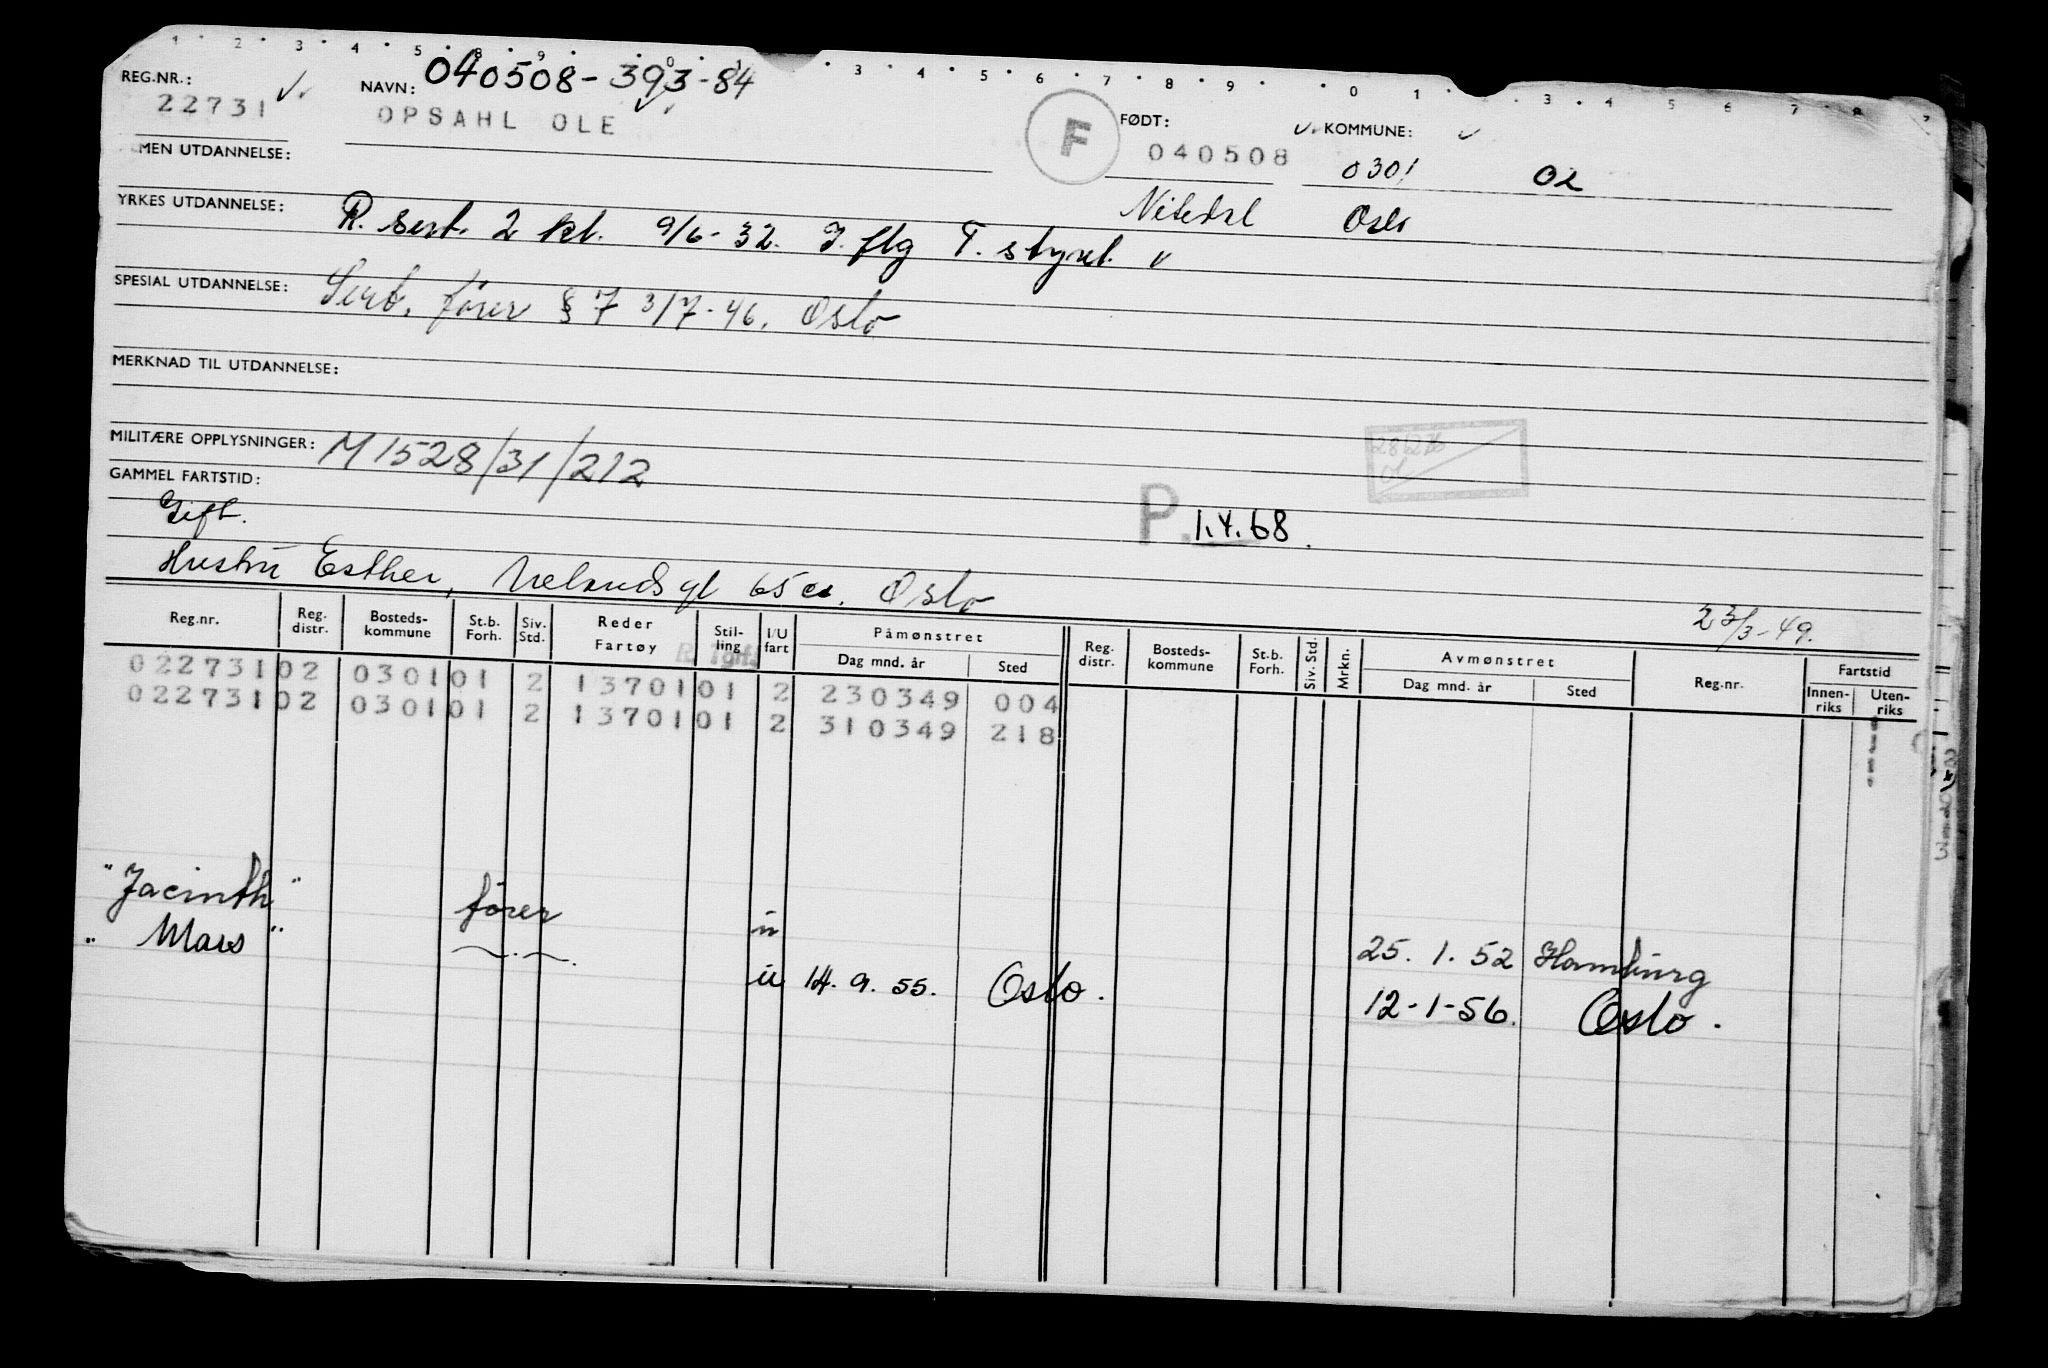 REG.NR.: 22731
NAVN: 040508-393-84
OPSAHL OLE
F
FØDT: 040508
KOMMUNE: 0301 02
Oslo
MEN UTDANNELSE:
YRKES UTDANNELSE: R. sert. 2 kl. 9/6-32. T. styrel.
SPESIAL UTDANNELSE: Sert. fører § 7 3/7-46. Oslo
MERKNAD TIL UTDANNELSE:
MILITÆRE OPPLYSNINGER: M 1528/31/212
GAMMEL FARTSTID:
Gift.
P. 1.4.68.
Hustru Esther, 65 Oslo
23/3-49.
Reg.nr. Reg. distr. Bosteds-kommune St.b. Forh. Siv. Std. Reder Fartøy Stil-ling I/U fart Påmønstret Dag mnd. år Sted Reg. distr. Bosteds-kommune St.b. Forh. Siv. Std. Mrkn. Avmønstret Dag mnd. år Sted Reg.nr. Fartstid Innen-riks Uten-riks
022731 02 0301 01 2 13701 01 2 230349 004
022731 02 0301 01 2 13701 01 2 310349 218
"Jacinth" fører u 25. 1. 52 Hamburg
"Mars" u 14. 9. 55. Oslo. 12-1-56. Oslo.